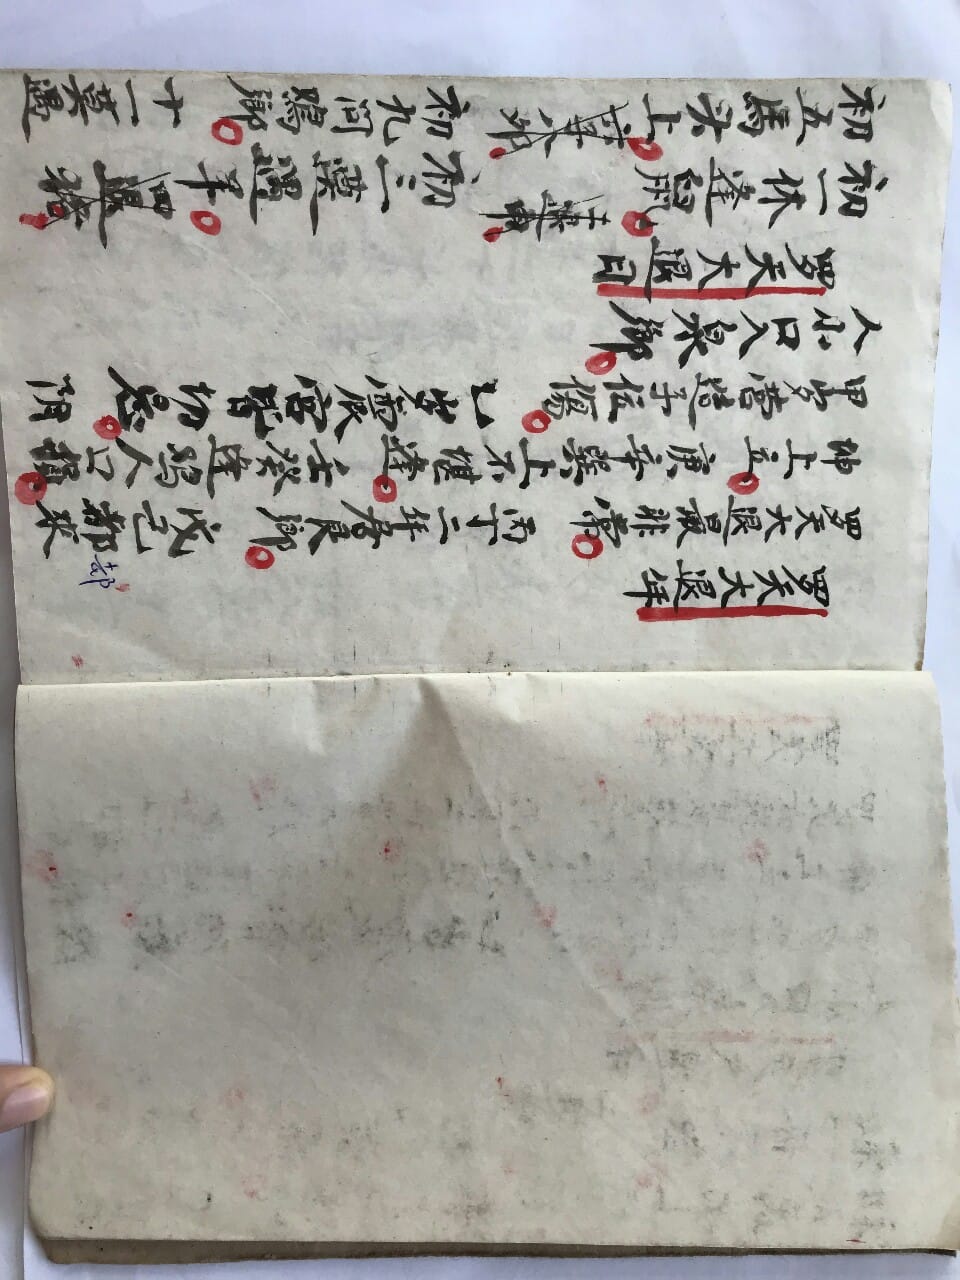 罗天大退年
罗天大退最非常。丙丁二年居艮鄉。戊己都来
都
坤上立。庚辛巽上不堪逢。壬癸逢鸡人口損。
甲岁营造子位傷。乙岁震宫皆切忌。阴
人小口入泉鄉。
罗天大退日
初一休逢鼠。二退申。初三莫遇羊。四退猪。
初五馬头上。六子八卯。初九问鸡鄉。十一莫遇